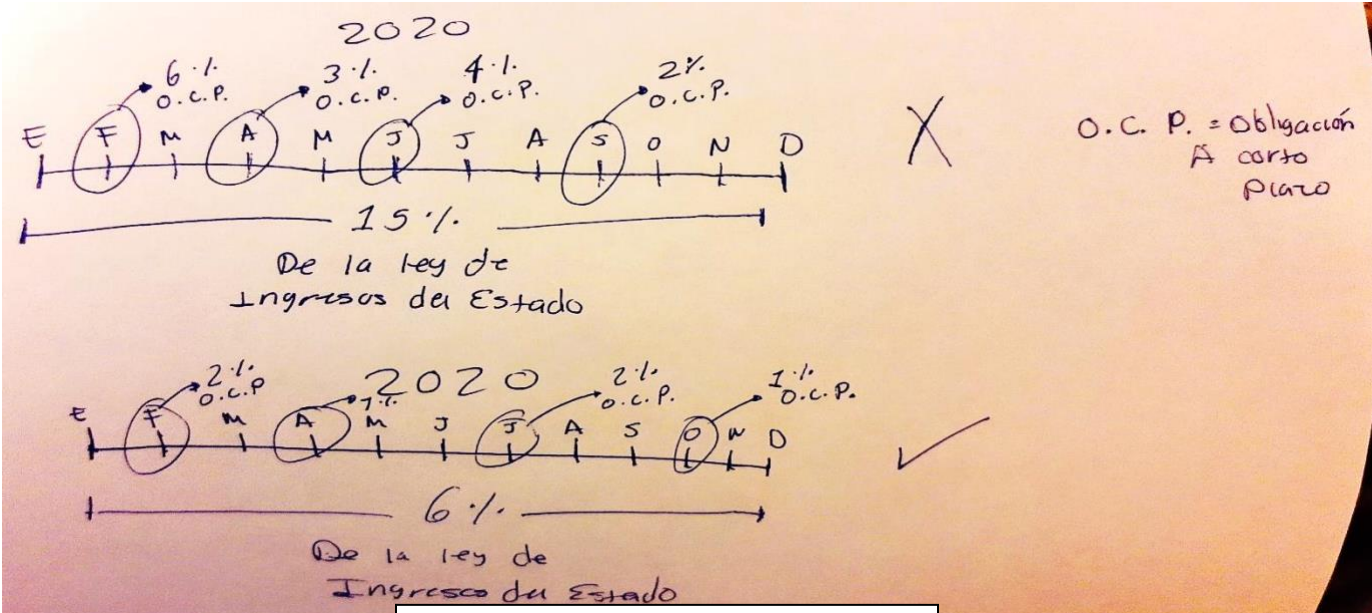 2020
6 %
O.C.P.
3 %
O.C.P.
4 %
O.C.P.
2%
O.C.P.
E F M A M J J A S O N D
X
O.C. P. = Obligación
A corto
plazo
15 %
De la ley de
Ingresos del Estado
2020
2 %
O.C.P
1 %
2 %
O.C.P.
1 %
O.C.P.
E F M A M J J A S O N D
6 %
De la ley de
Ingresos del Estado